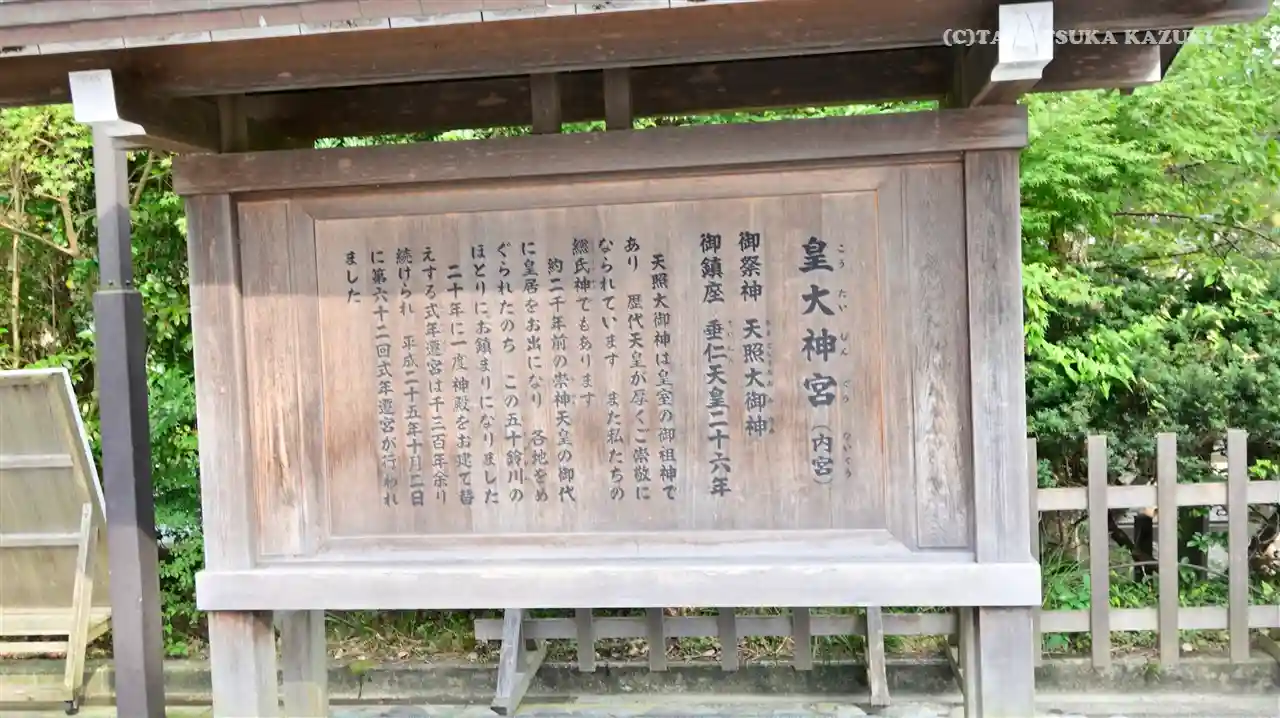 (C)TAKATSUKA KAZUKI
皇大神宮（内宮）
こうたいじんぐう ないくう
御祭神 天照大御神
あまてらすおおみかみ
御鎮座 垂仁天皇二十六年
すいにん
天照大御神は皇室の御祖神で
あり 歴代天皇が厚くご崇敬に
なられています また私たちの
総氏神でもあります
約二千年前の崇神天皇の御代
に皇居をお出になり 各地をめ
ぐられたのち この五十鈴川の
ほとりにお鎮まりになりました
二十年に一度神殿をお建て替
えする式年遷宮は千三百年余り
続けられ 平成二十五年十月二日
に第六十二回式年遷宮が行われ
ました